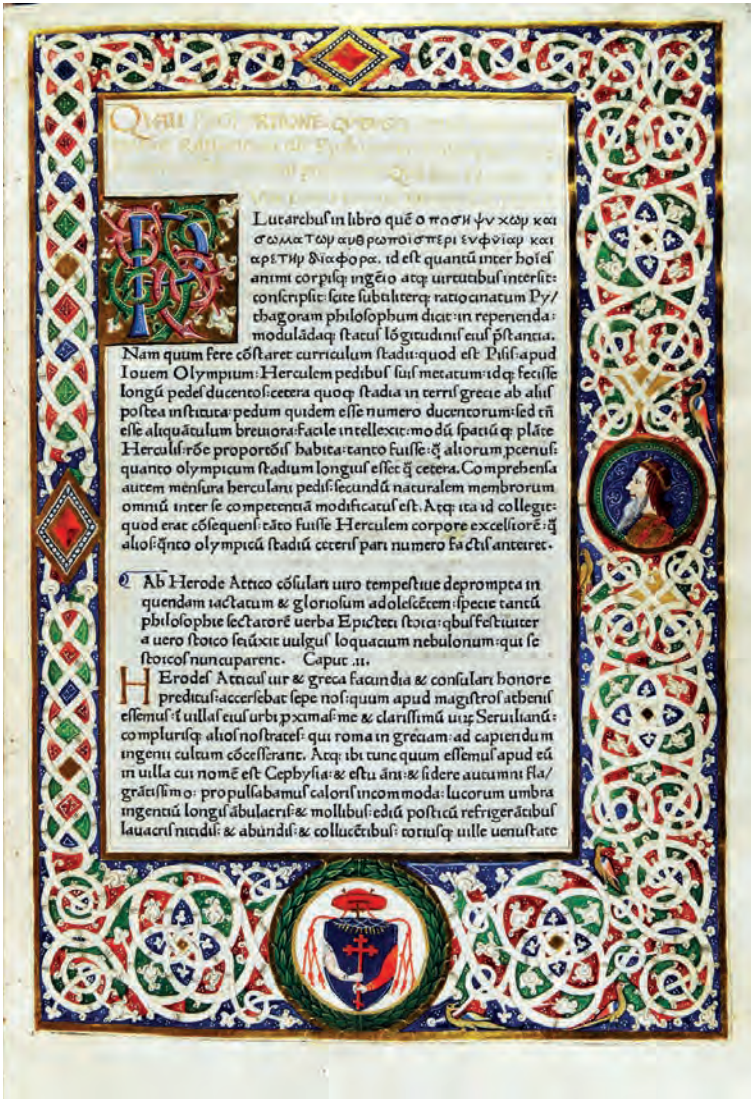 QVALI PROPORTIONE
P
Lutarchuſ in libro quē ὁποση ψυχων και
σωματων ανθρωποισ περι ευφνίαν και
αρετην διαφορα. id eſt quantū inter hoīeſ
animi corpiſq; ingēio atq; uirtutibuſ interſit:
conſcripſit: ſcite ſubtiliterq; ratiocinatum Py/
thagoram philoſophum dicit: in reperienda:
modulādaq; ſtatuſ lōgitudiniſ eiuſ p̄ſtantia.
Nam quum fere cōſtaret curriculum ſtadii: quod eſt Piſiſ apud
Iouem Olympium: Herculem pedibuſ ſuiſ metatum: idq; feciſſe
longū pedeſ ducentoſ: cetera quoq; ſtadia in terriſ grecie ab aliiſ
poſtea inſtituta: pedum quidem eſſe numero ducentorum: ſed tn̄
eſſe aliquātulum breuiora: facile intellexit: modū ſpatiūq; plāte
Herculiſ: rōe proportōiſ habita: tanto fuiſſe: q̄ aliorum pcenuſ:
quanto olympicum ſtadium longiuſ eſſet q̄ cetera. Comprehenſa
autem menſura herculani pediſ: ſecundū naturalem membrorum
omniū inter ſe competentiā modificatuſ eſt. Atq; ita id collegit:
quod erat cōſequenſ: tāto fuiſſe Herculem corpore excelſiorē: q̄
alioſ: q̄nto olympicū ſtadiū ceteriſ pari numero factiſ anteiret.
Ab Herode Attico cōſulari uiro tempeſtiue deprompta in
quendam iactatum & glorioſum adoleſcētem: ſpecie tantū
philoſophie ſectatorē uerba Epicteti ſtoici: qbuſ feſtiuiter
a uero ſtoico ſeiūxit uulguſ loquacium nebulonum: qui ſe
ſtoicoſ nuncuparent. Caput .ii.
Herodeſ Atticuſ uir & greca facundia & conſulari honore
predituſ: accerſebat ſepe noſ: quum apud magiſtroſ atheniſ
eſſemuſ: ī uillaſ eiuſ urbi pximaſ: me & clariſſimū uiꝝ Seruilianū:
compluriſq; alioſ noſtrateſ: qui roma in greciam: ad capiendum
ingenii cultum cōceſſerant. Atq; ibi tunc quum eſſemuſ apud eū
in uilla cui nomē eſt Cephyſia: & eſtu āni: & ſidere autumni fla/
grātiſſimo: propulſabamuſ caloriſ incommoda: lucorum umbra
ingentiū longiſ ābulacriſ: & mollibuſ: ediū poſticū refrigerātibuſ
lauacriſ nitidiſ: & abundiſ: & collucētibuſ: totiuſq; uille uenuſtate